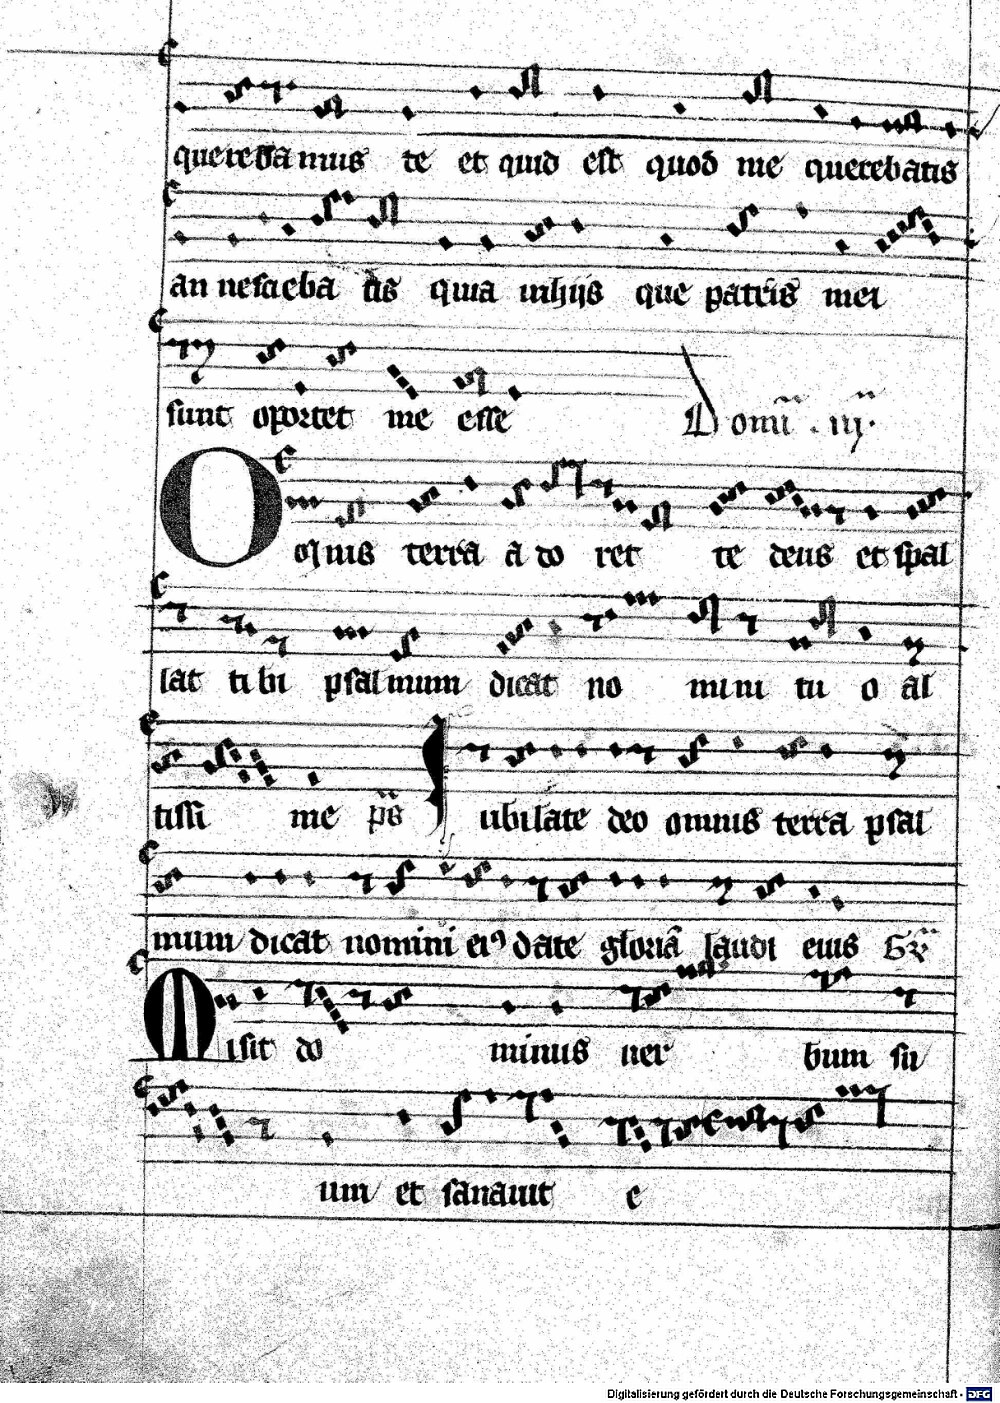 querebamus te et quid est quod me querebatis
an nescieba tis quia inhijs que patris mei
sunt oportet me esse
O
mnis terra a do ret te deus et psal
lat tibi psalmum dicat no mini tu o al
tissi me ps Iubilate deo omnis terra psal
mum dicat nomini eiꝯ date gloriā laudi eius
Misit do minus ver bum su
um et sanauit e
Digitalisierung gefördert durch die Deutsche Forschungsgemeinschaft - DFG